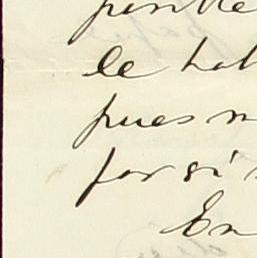 le hab
pues n
por si
En